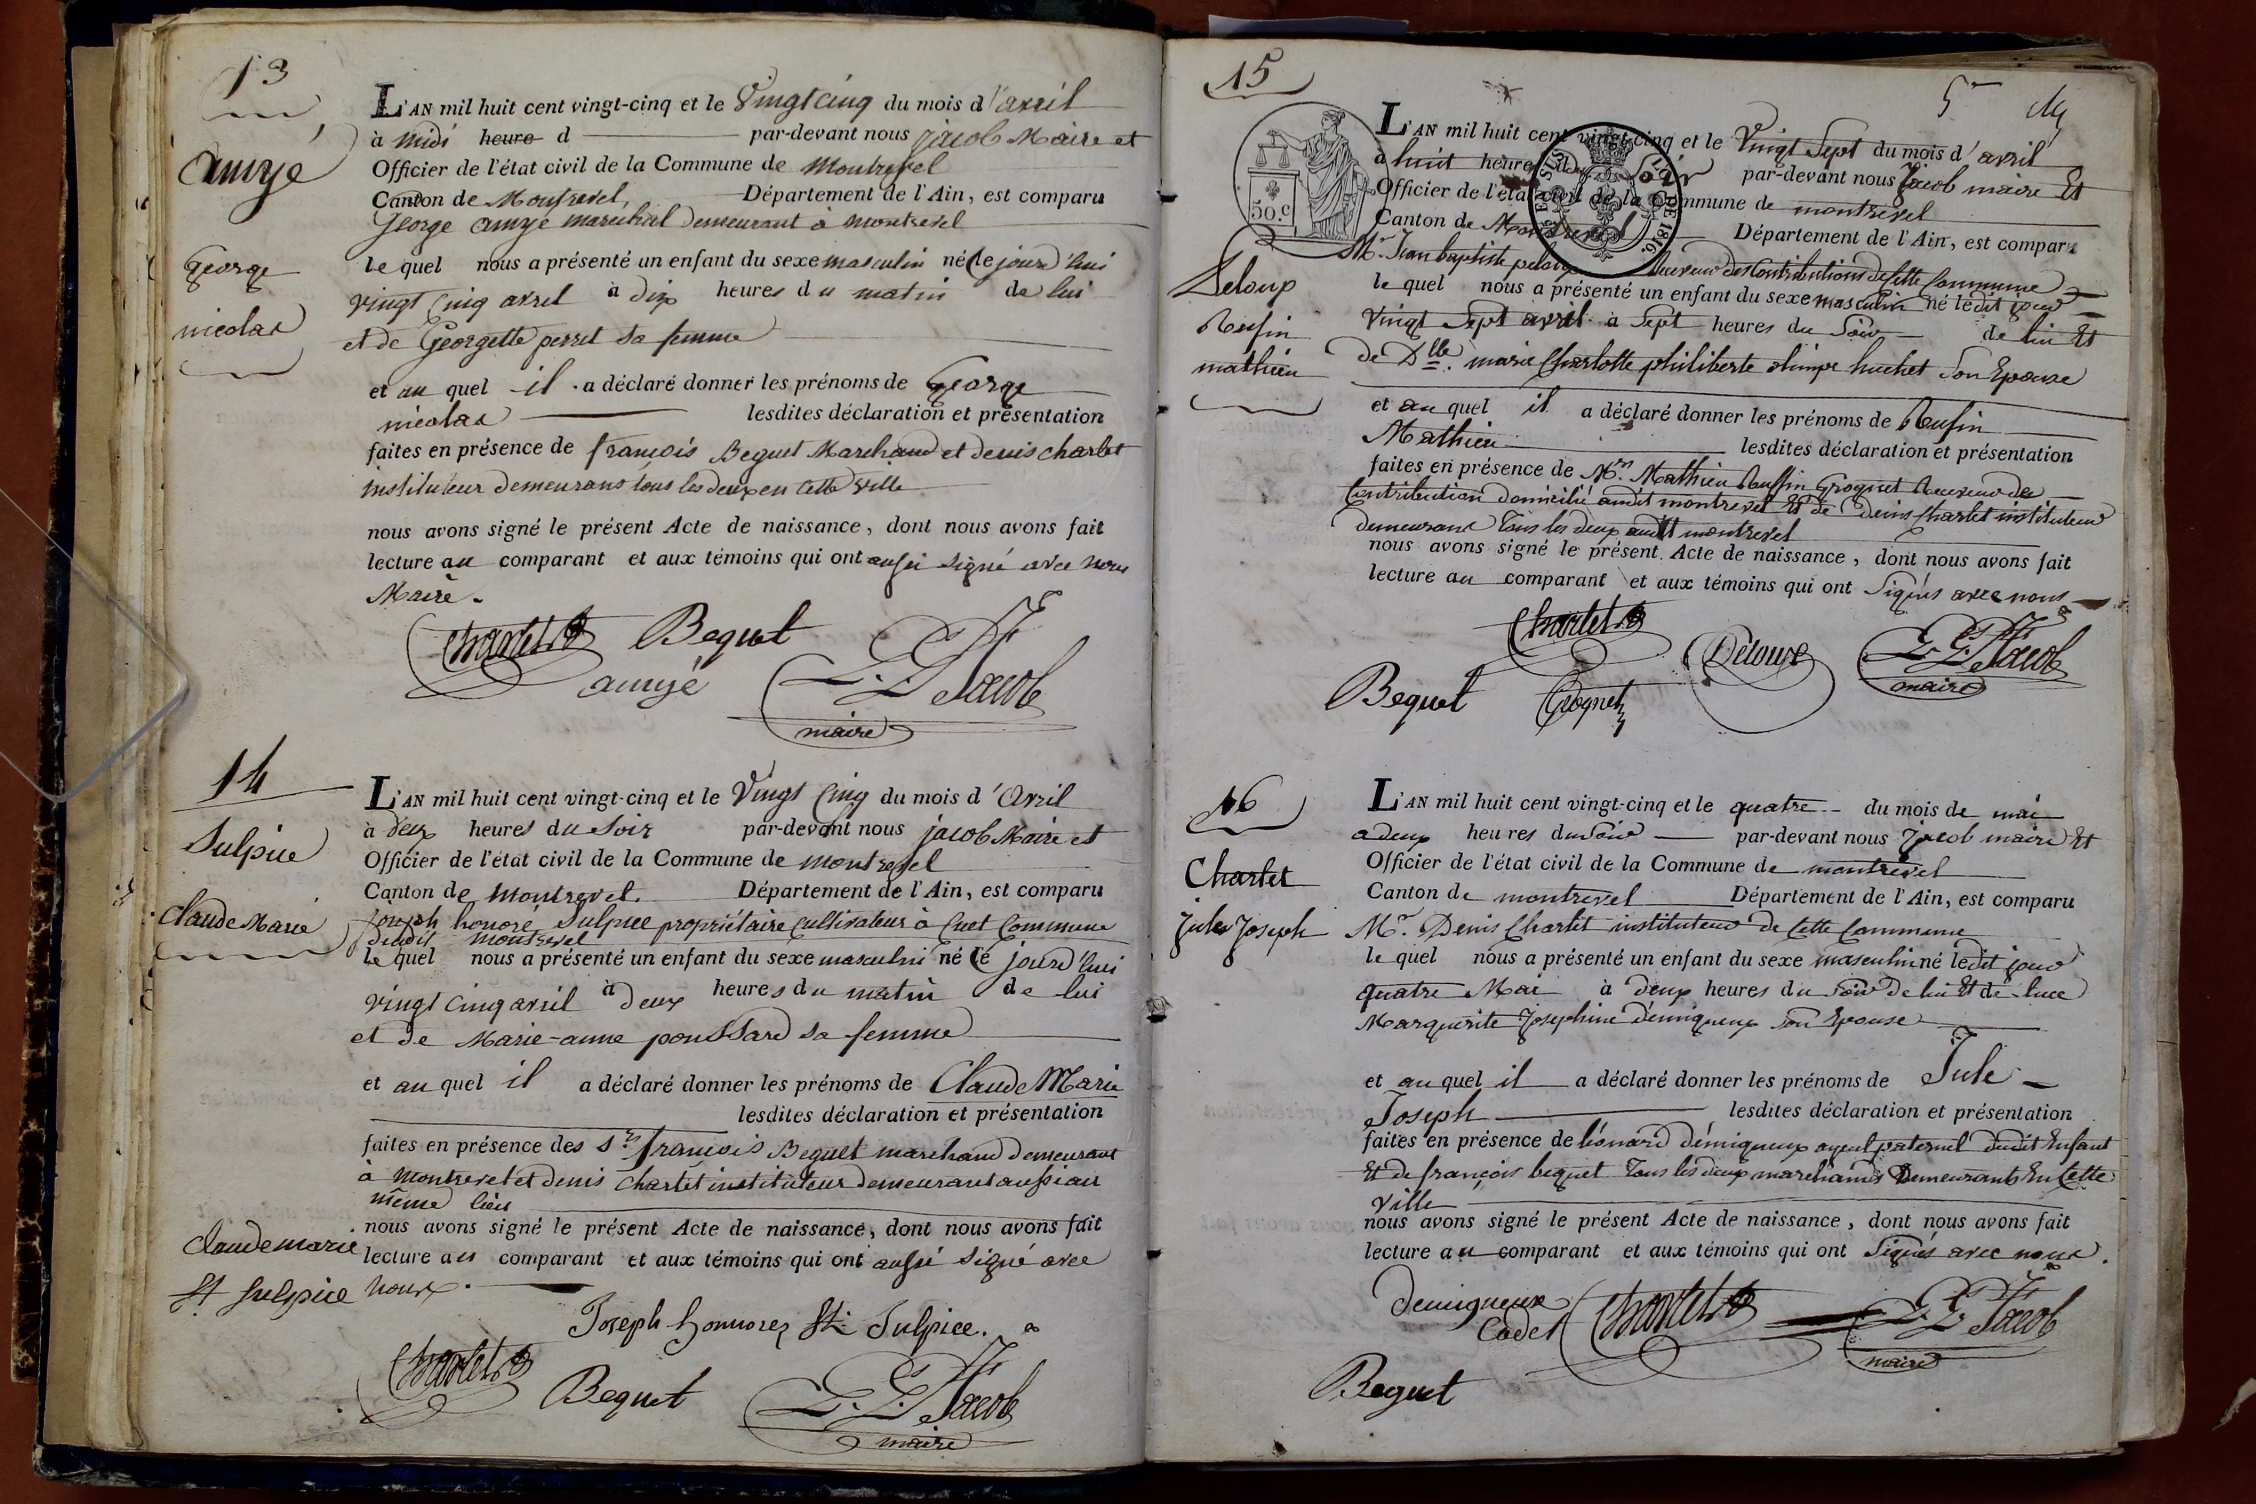 13
amyé
George
nicolas
L'AN mil huit cent vingt-cinq et le Vingt cinq du mois d'avril
à midi heure d par-devant nous jacob Maire et
Officier de l'état civil de la Commune de Montrevel
Canton de Montrevel, Département de l'Ain, est comparu
George amyé marechal demeurant à montrevel
le quel nous a présenté un enfant du sexe masculin né le jourd'hui
vingt cinq avril à dix heures du matin de lui
et de Georgette perret sa femme
et au quel il a déclaré donner les prénoms de George
nicolas lesdites déclaration et présentation
faites en présence de françois Bequet Marchand et denis charlet
instituteur demeurans tous les deux en cette ville
nous avons signé le présent Acte de naissance, dont nous avons fait
lecture au comparant et aux témoins qui ont aussi signé avec nous
Maire.
Charlet Bequet
amyé Jacob
maire
14
Sulpice
Claude Marie
L'AN mil huit cent vingt-cinq et le Vingt Cinq du mois d'Avril
à deux heures du soir par-devant nous jacob Maire et
Officier de l'état civil de la Commune de montrevel
Canton de Montrevel. Département de l'Ain, est comparu
joseph honoré Sulpice propriétaire cultivateur à Cuet Commune
dudit montrevel
le quel nous a présenté un enfant du sexe masculin né le jourd'hui
vingt cinq avril à deux heures du matin de lui
et de Marie-anne poussard sa femme
et au quel il a déclaré donner les prénoms de Claude Marie
lesdites déclaration et présentation
faites en présence des Srs françois Bequet marchand demeurant
à Montrevel et denis charlet instituteur demeurant aussi au
même lieu
nous avons signé le présent Acte de naissance, dont nous avons fait
lecture au comparant et aux témoins qui ont aussi signé avec
nous.
Claude marie
St Sulpice
Joseph honnorez St Sulpice.
Charlet Bequet Jacob
maire
15
5
Deloup
Rufin
mathieu
50 c.
L'AN mil huit cent vingt-cinq et le Vingt Sept du mois d'avril
à huit heures du Soir par-devant nous Jacob maire Et
Officier de l'état civil de la Commune de montrevel
Canton de Montrevel Département de l'Ain, est comparu
Mr. Jean baptiste Receveur des Contributions de Cette Commune
le quel nous a présenté un enfant du sexe masculin né ledit jour
Vingt Sept avril à Sept heures du Soir de lui Et
de Dlle. marie Charlotte philiberte olimpe huchet Son Epouse
et au quel il a déclaré donner les prénoms de Rufin
Mathieu lesdites déclaration et présentation
faites en présence de Mrs. Mathieu Ruffin Grognet Receveur des
Contribution domicilié audit montrevel Et de denis Charlet instituteur
demeurans Tous les deux audit montrevel
nous avons signé le présent Acte de naissance, dont nous avons fait
lecture au comparant et aux témoins qui ont Signés avec nous
Charlet Jacob
maire
Bequet Grognet
16
Charlet
Jules Joseph
L'AN mil huit cent vingt-cinq et le quatre du mois de mai
a deux heures du Soir par-devant nous Jacob maire Et
Officier de l'état civil de la Commune de montrevel
Canton de montrevel Département de l'Ain, est comparu
Mr. Denis Charlet instituteur de Cette Commune
le quel nous a présenté un enfant du sexe masculin né ledit jour
quatre Mai à deux heures du Soir de lui Et de luce
Marguerite Josephine démigneux Son Epouse
et au quel il a déclaré donner les prénoms de Jule
Joseph lesdites déclaration et présentation
faites en présence de léonard démigneux ayeul paternel dudit Enfant
Et de françois bequet Tous les deux marchands Demeurants En Cette
Ville
nous avons signé le présent Acte de naissance, dont nous avons fait
lecture au comparant et aux témoins qui ont Signés avec nous.
Demigneux
Cadet Charlet Jacob
maire
Bequet